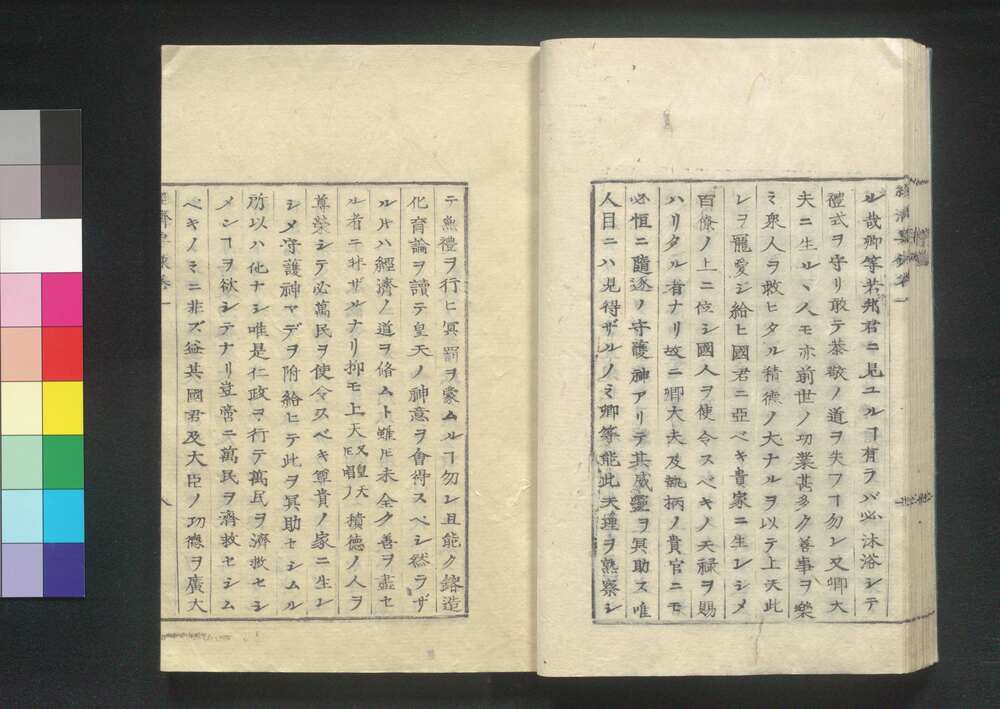 ル哉卿等若邦君ニ見ユルヿ有ラバ必沐浴シテ
禮式ヲ守リ敢テ恭敬ノ道ヲ失フヿ勿レ又卿大
夫ニ生ルヽ人モ亦前世ノ功業甚多ク善事ヲ樂
ミ衆人ヲ救ヒタル積德ノ大ナルヲ以テ上天此
レヲ寵愛シ給ヒ國君ニ亞ベキ貴家ニ生レシメ
百僚ノ上ニ位シ國人ヲ使令スベキノ天祿ヲ賜
ハリタル者ナリ故ニ卿大夫及執柄ノ貴官ニモ
必恒ニ隨逐ノ守護神アリテ其威靈ヲ冥助ス唯
人目ニハ見得ザルノミ卿等能此天理ヲ熟察シ
テ無禮ヲ行ヒ冥罰ヲ蒙ムルヿ勿レ且能ク鎔造
化育論ヲ讀テ皇天ノ神意ヲ會得スベシ然ラザ
ルトキハ經濟ノ道ヲ脩ムト雖ドモ未全ク善ヲ盡セ
ル者ニ非ザルナリ抑モ上天又皇天トモ唱フノ積德ノ人ヲ
尊榮シテ必萬民ヲ使令スベキ尊貴ノ家ニ生レ
シメ守護神マデヲ附給ヒテ此ヲ冥助セシムル
所以ハ他ナシ唯是仁政ヲ行テ萬民ヲ濟救セシ
メンヿヲ欲シテナリ豈啻ニ萬民ヲ濟救セシム
ベキノミニ非ズ益其國君及大臣ノ功德ヲ廣大
八